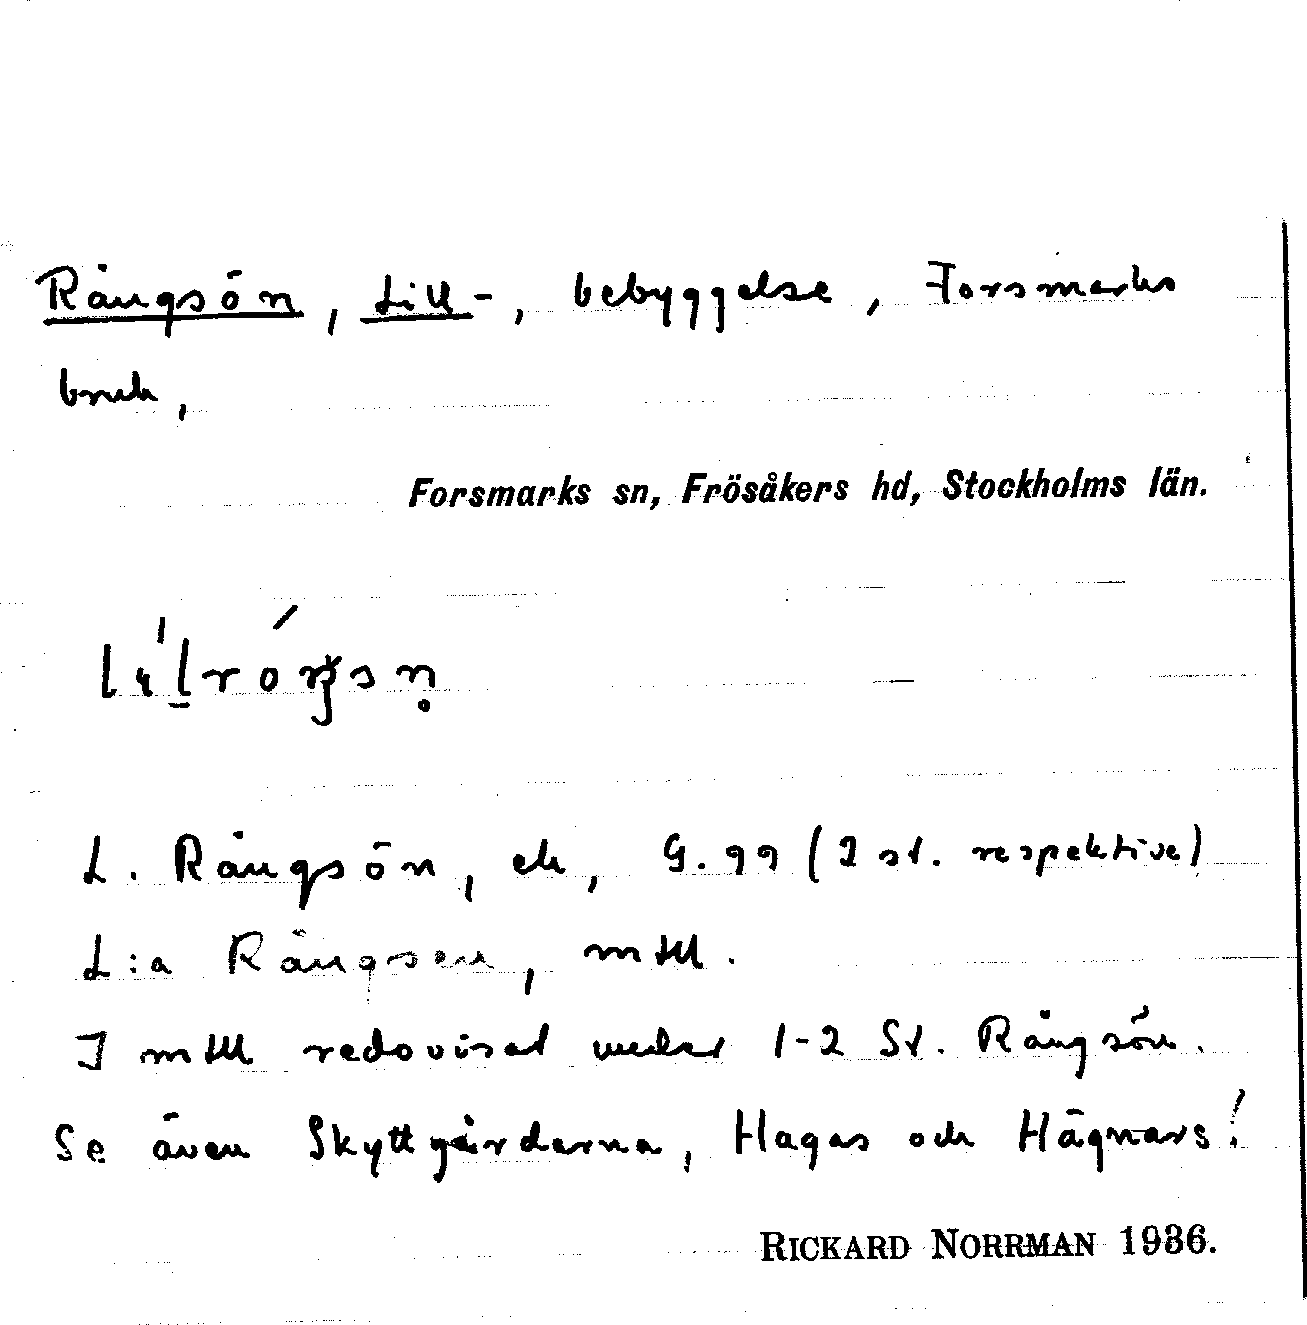 Rångsön, Lill-, bebyggelse, Forsmarks
bruk,
Forsmarks sn, Frösåkers hd, Stockholms län.
L. Rångsön, ek, G. 99 (2 st. respektive)
L:a Rångsen, mtll.
I mtll redovisat under 1-2 St. Rångsön.
Se även Skyttgårdarna, Hagas och Hägnars!
RICKARD NORRMAN 1936.